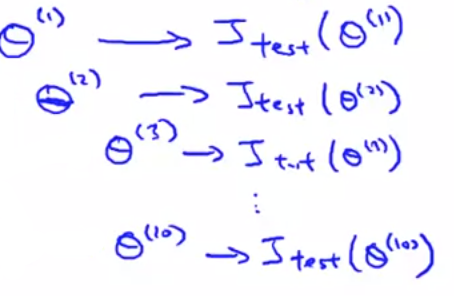 Θ⁽¹⁾ → J_test(Θ⁽¹⁾)
Θ⁽²⁾ → J_test(Θ⁽²⁾)
Θ⁽³⁾ → J_test(Θ⁽³⁾)
⋮
Θ⁽¹⁰⁾ → J_test(Θ⁽¹⁰⁾)